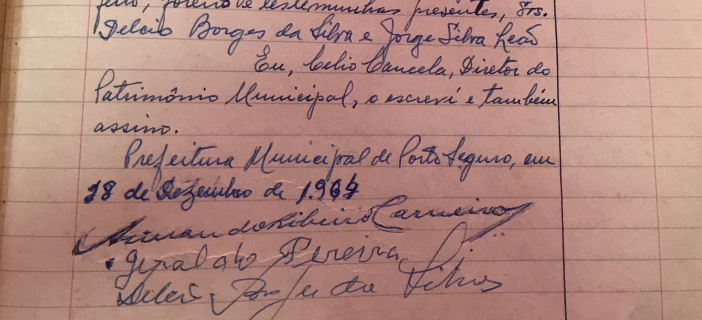 feito, foram de testemunhas presentes, Srs.
Delcio Borges da Silva e Jorge Silva Leão
Eu, Celio Cancela, Diretor do
Patrimônio Municipal, o escreví e também
assino.
Prefeitura Municipal de Porto Seguro, em
28 de Dezembro de 1.967
Armando Ribeiro Carneiro
Geraldo Pereira
Delcio Borges da Silva